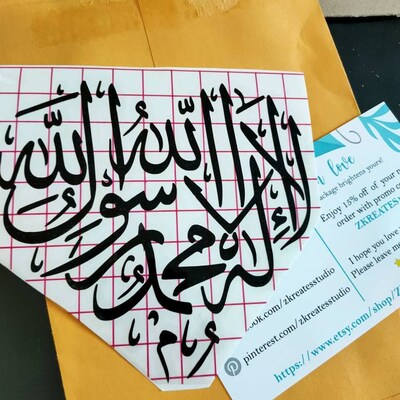 لا إله إلا الله محمد رسول الله
love
package brightens yours!
Enjoy 15% off of your
order with promo
ZKREATES
I hope you love
Please leave me
ook.com/zkreatesstudio
pinterest.com/zkreatesstudio
https://www.etsy.com/shop/Z